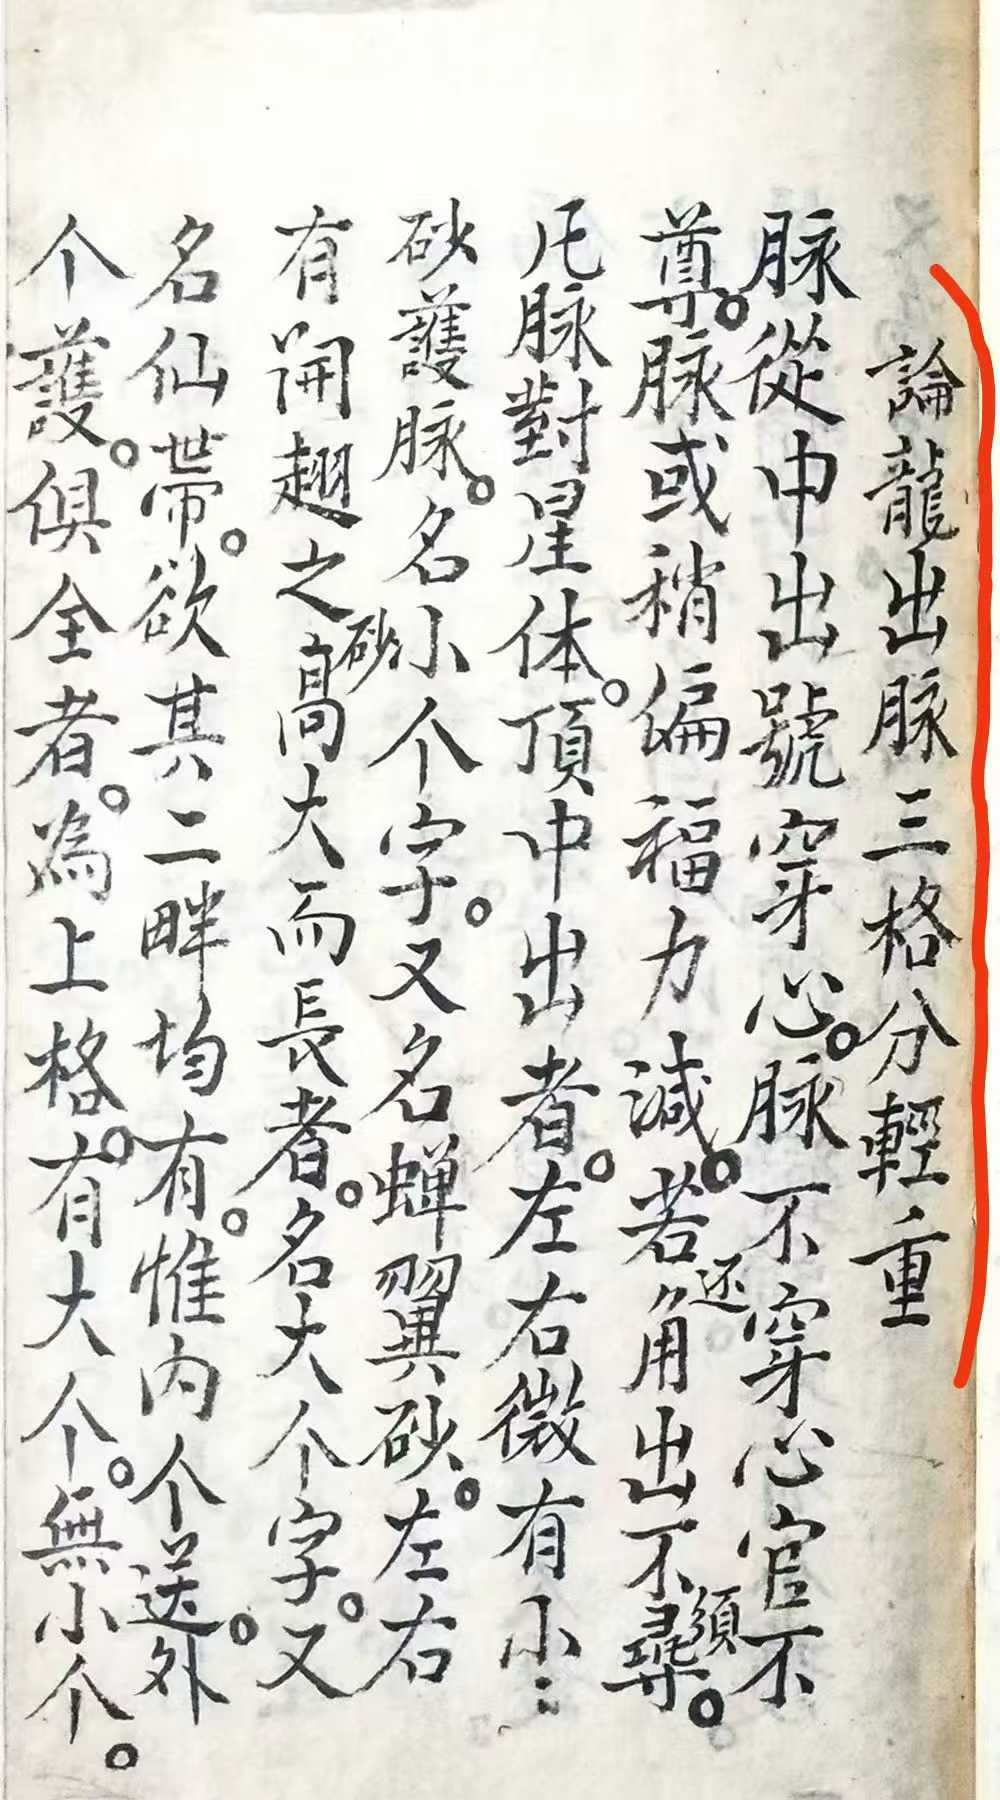 論龍出脉三格分輕重
脉從中出號穿心。脉不穿心官不
尊。脉或稍偏福力減。若还角出不須尋。
凡脉對星体。頂中出者。左右微有小〻
砂護脉。名小个字。又名蝉翼砂。左右
有開翅之砂高大而長者。名大个字。又
名仙帶。欲其二畔均有。惟内个送。外
个護。俱全者。為上格。有大个。無小个。